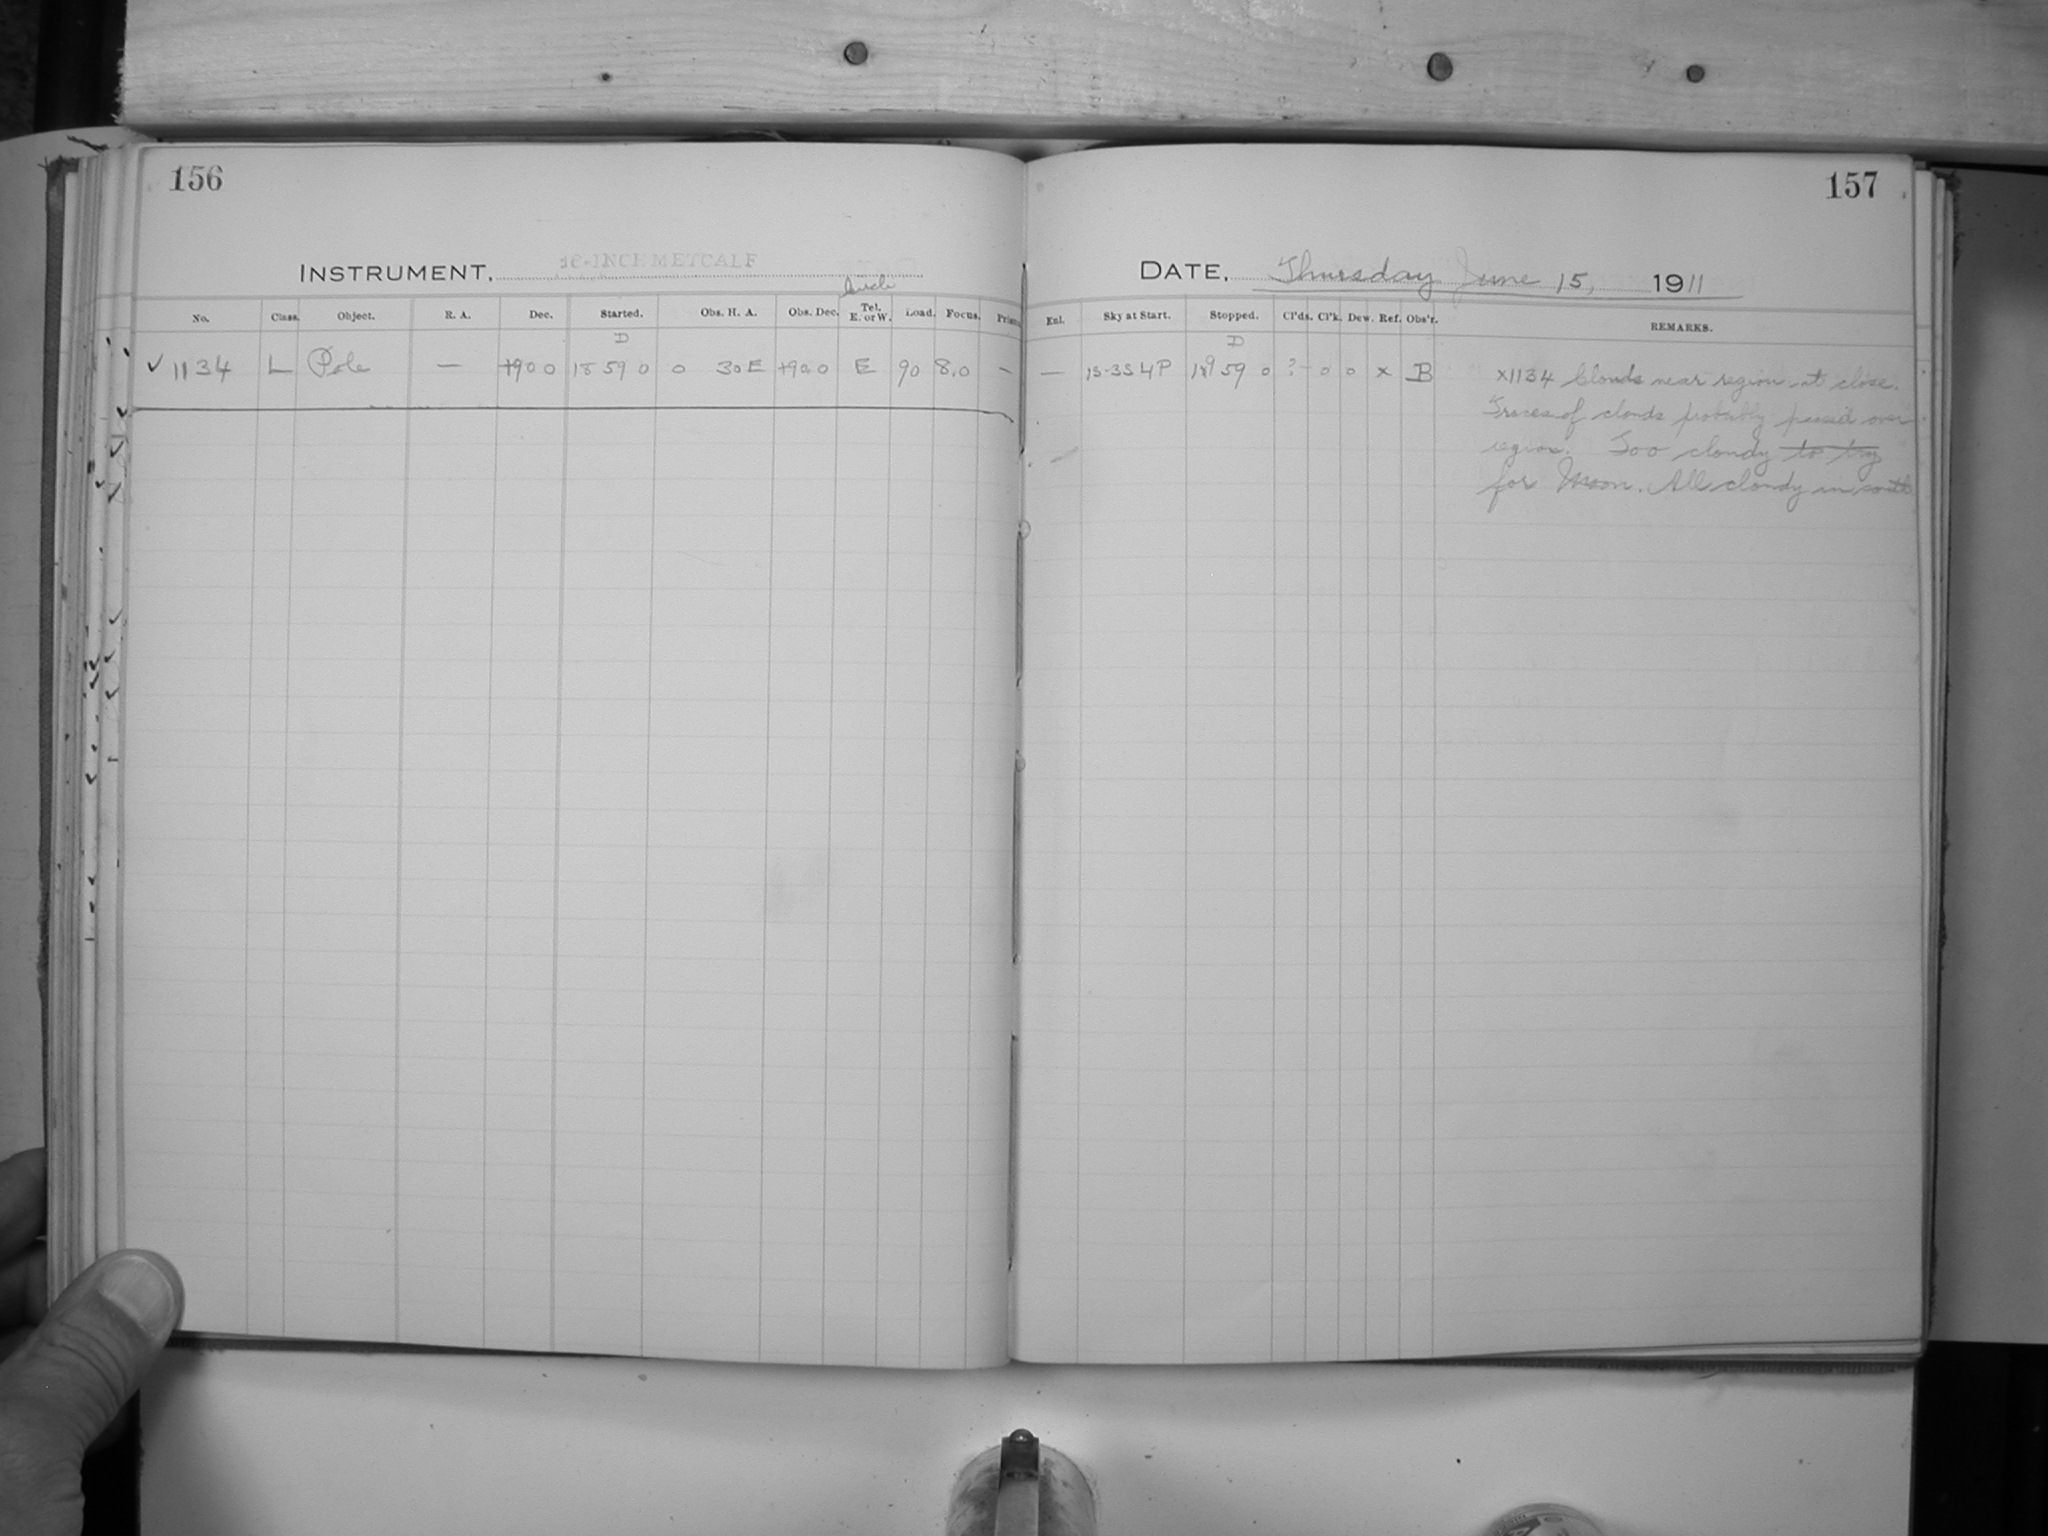 156
INSTRUMENT, 16-INCH METCALF
Circle
No. Class. Object. R. A. Dec. Started. Obs. H. A. Obs. Dec. Tel. E. or W. Load. Focus. Prism
D
✓ 1134 L Pole — +90 0 18 59 0 0 30 E +90 0 E 90 8.0 —
157
DATE, Thursday June 15, 1911
Enl. Sky at Start. Stopped. Cl'ds. Cl'k. Dew. Ref. Obs'r. REMARKS.
D
— 13-3S 4P 19 59 0 ? - 0 0 x B
x1134 Clouds near region at close.
Traces of clouds probably passed over
region. Too cloudy to try
for Moon. All cloudy in south